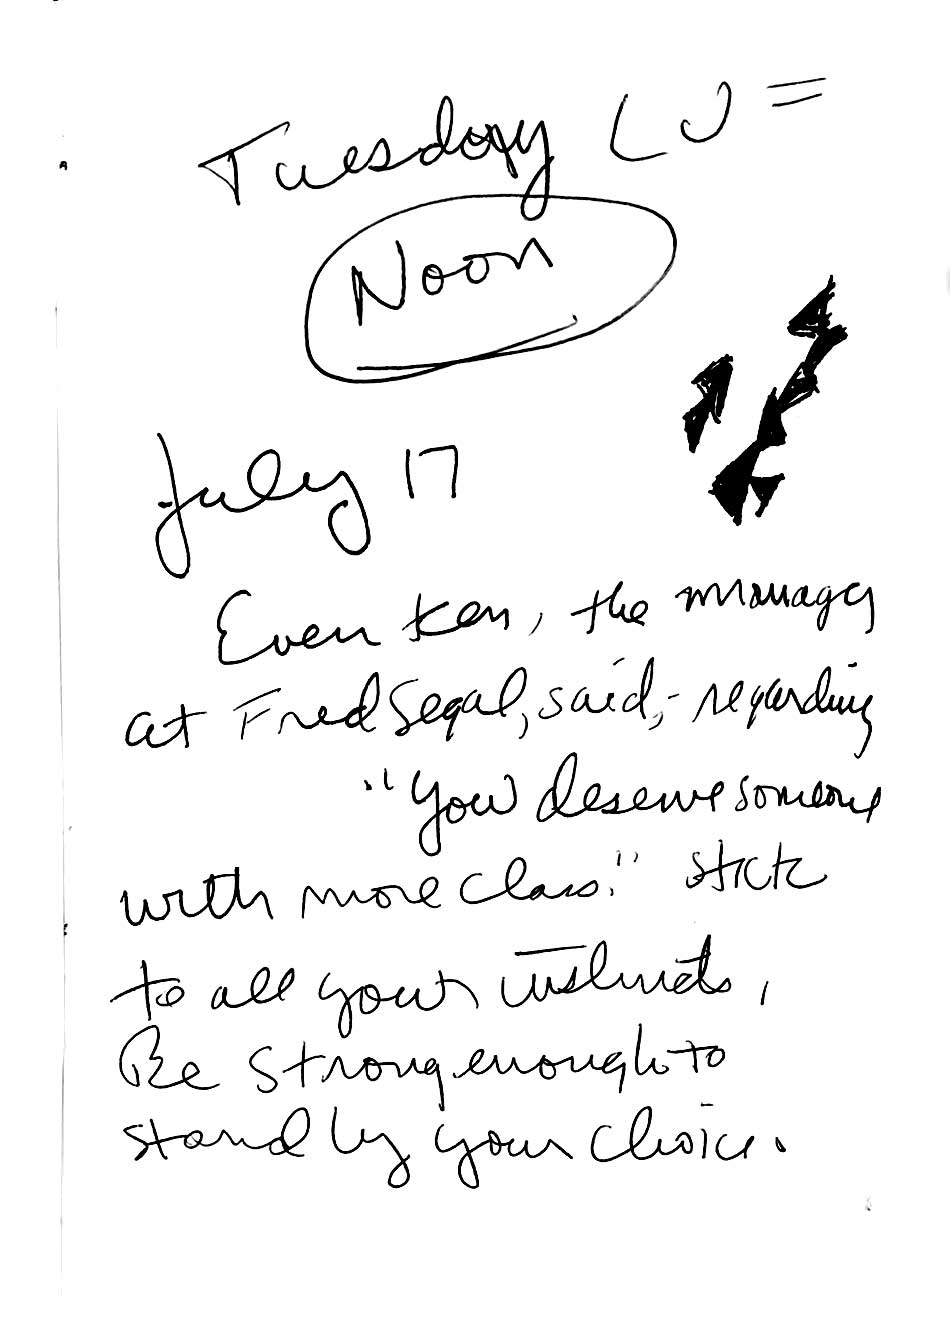 Tuesday
Noon
July 17
Even Ken, the manager
at Fred Segal, said, - regarding
"You deserve someone
with more class." Stick
to all your instincts,
Be strong enough to
stand by your choice.